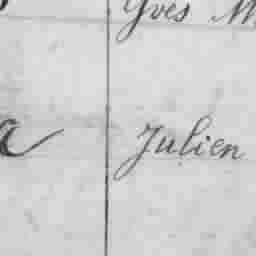 Yves
a Julien